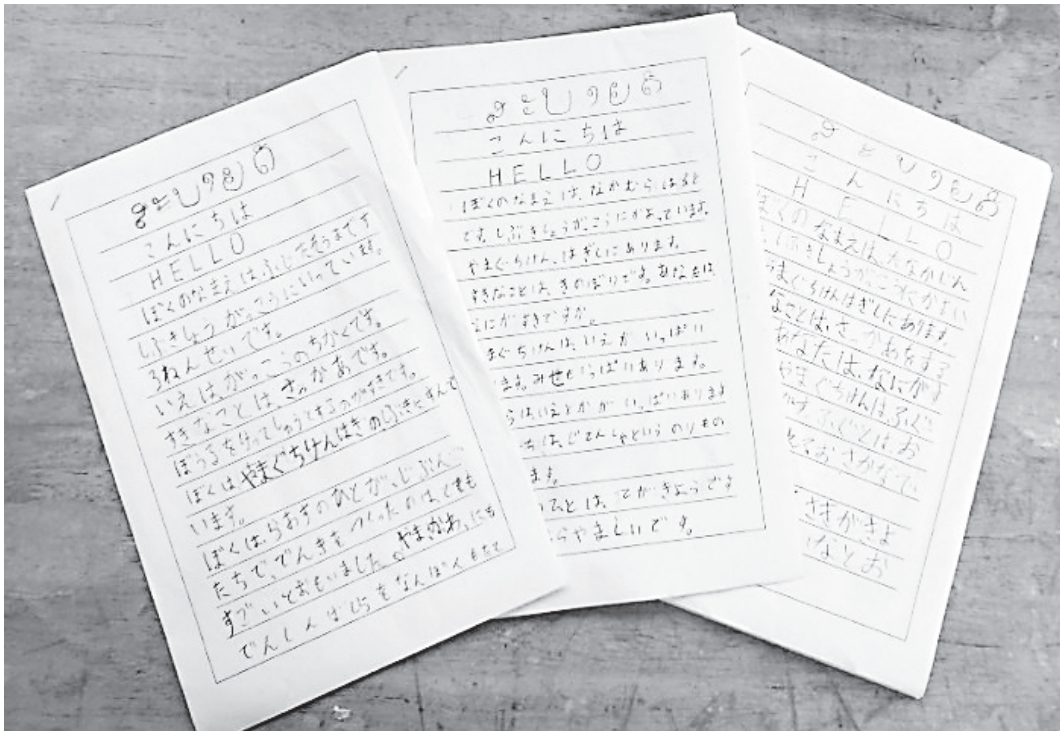 ສະບາຍດີ
こんにちは
HELLO
ぼくのなまえはふじたそうまです
しぶきしょうがっこうにいっています。
ねんせいです。
いえはがっこうのちかくです。
すきなことはさっかあです。
ぼうるをけってしゅうとするのがすきです。
ぼくはやまぐちけんはぎのしぶきにすんで
います。
ぼくは、らおすのひとが、じぶん
たちで、でんきをつくったのは、とても
すごいとおもいました。
でんしんばしらをなんぼんもたて
ສະບາຍດີ
こんにちは
HELLO
ぼくのなまえは、なかむらはると
です。しぶきしょうがっこうにかよっています。
やまぐちけん、はぎしにあります。
すきなことは、きのぼりです。あなたは
なにがすきですか。
まぐちけんは、いえがいっぱい
ます。みせもいっぱいあります。
らはいえとかがいっぱいあります
ちは、じてんしゃというのりもの
ます。
ひとは、てがきようです
らやましいです。
ສະບາຍດີ
こんにちは
HELLO
ぼくのなまえは、たなかじん
しぶきしょうがっこうにかよい
まぐちけんはぎしにあります。
なことは、さっかあをする
あなたは、なにがす
やまぐちけんはふぐ
す。ふぐとはお
ておさかなでい